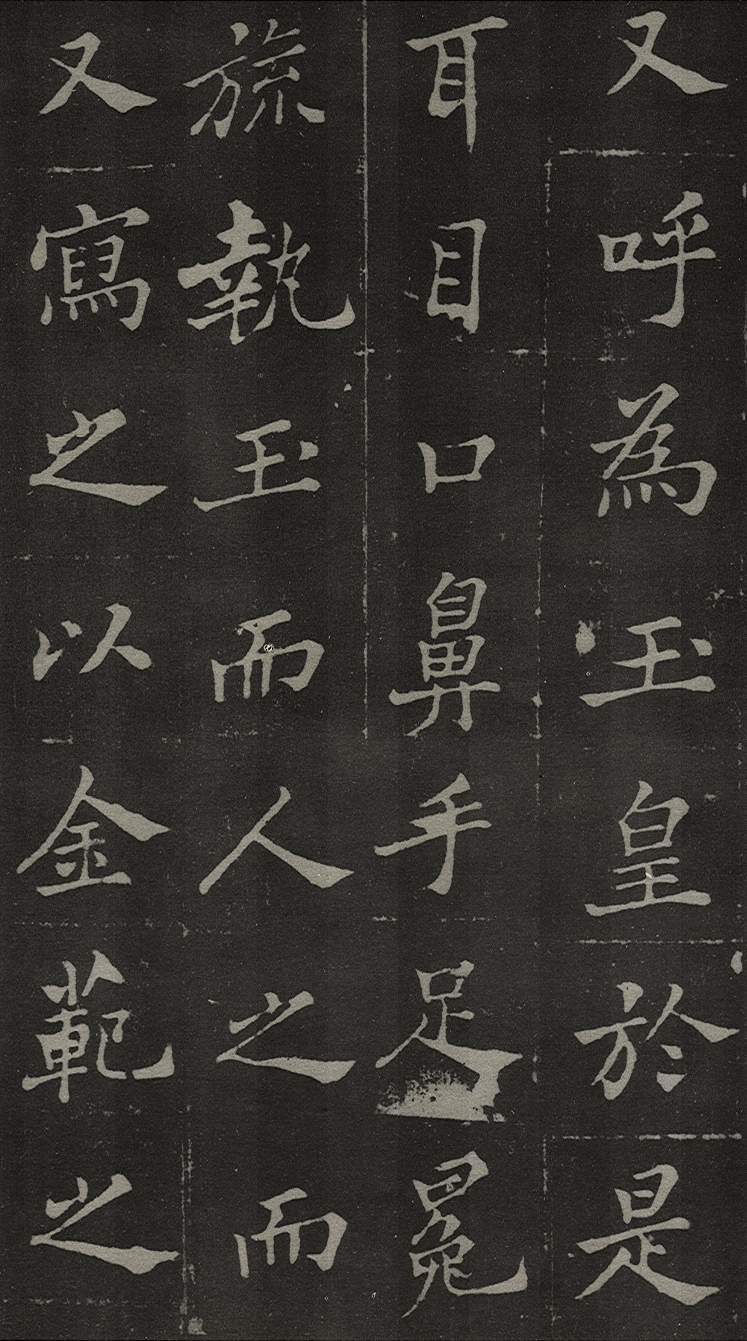 又呼為玉皇於是
耳目口鼻手足冕
旒執玉而人之而
又寫之以金範之